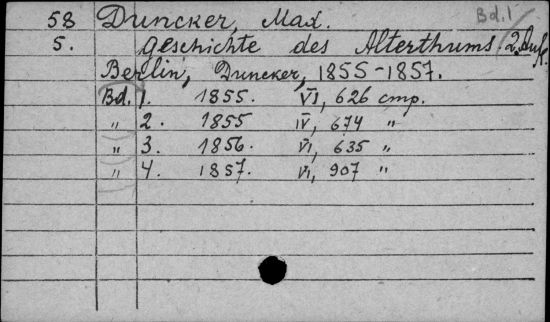 58 Duncker, Max. Bd. 1
5. Geschichte des Alterthums. 2. Aufl.
Berlin, Duncker, 1855-1857.
Bd. 1. 1855. VI, 626 стр.
" 2. 1855 IV, 674 "
" 3. 1856. VI, 635 "
" 4. 1857. VI, 907 "